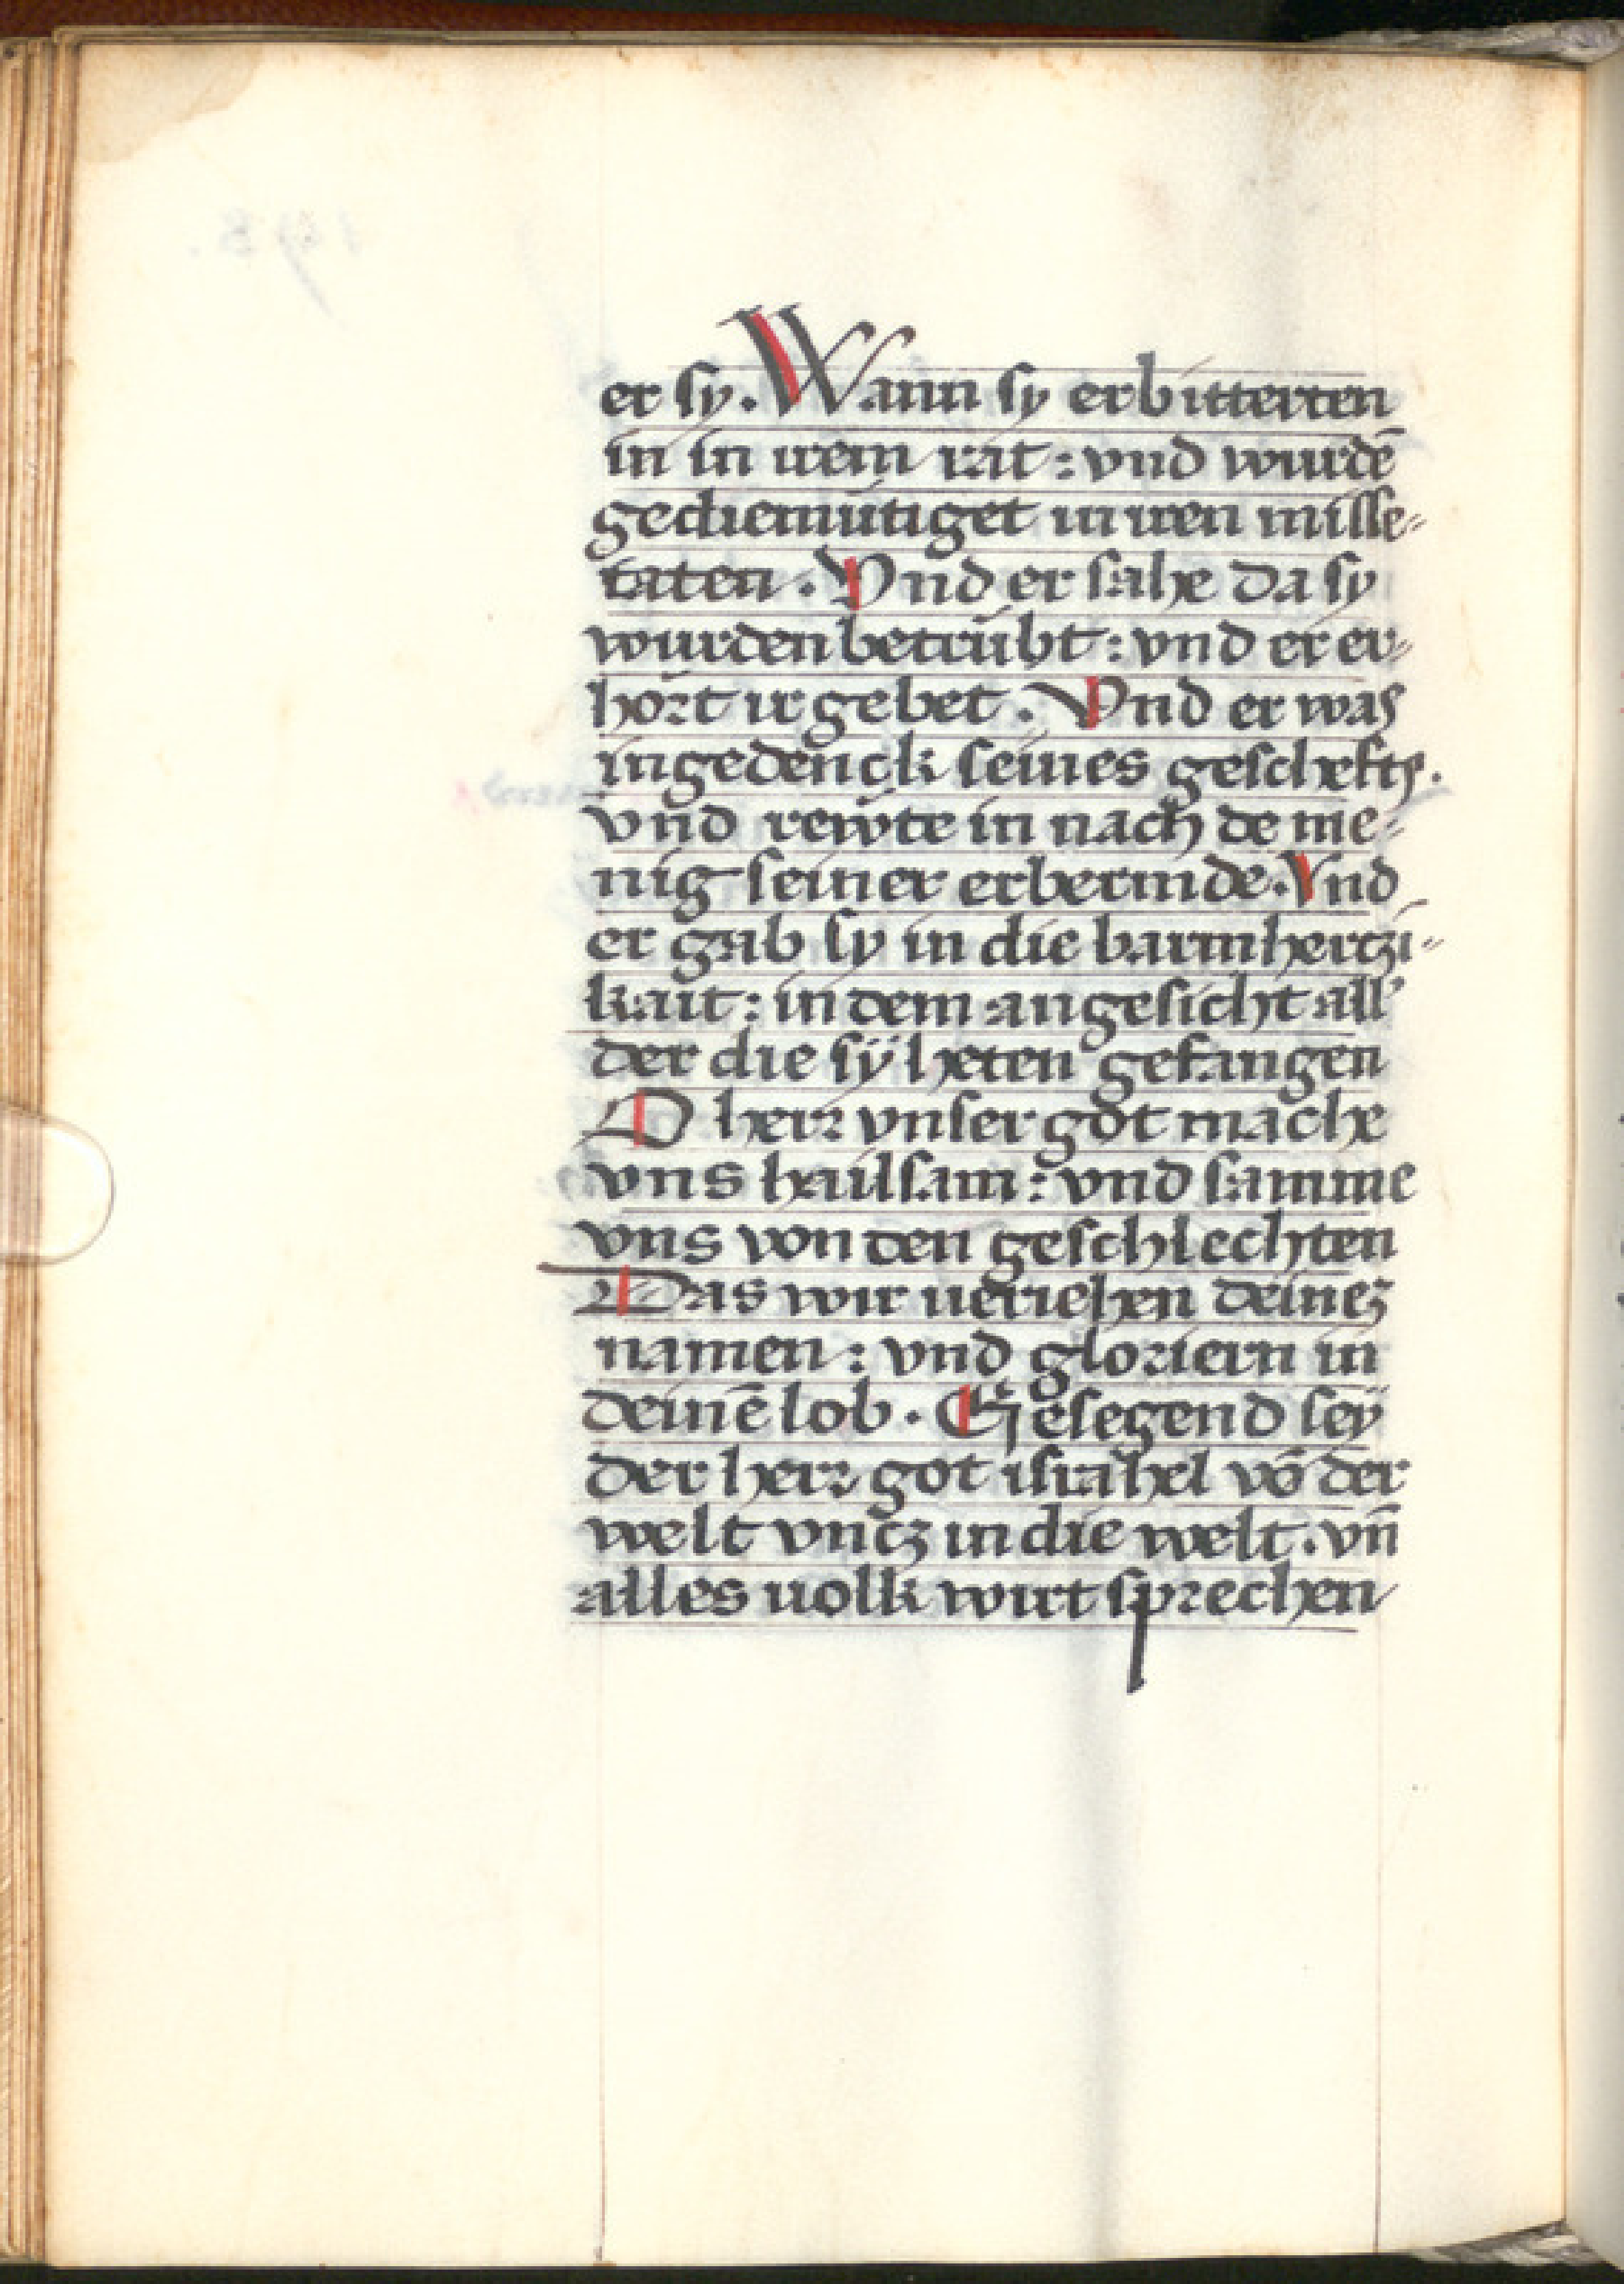 er sy. Wann sy erbitterten
in in irem rat: vnd wurdē
gediemutiget in iren misse=
taten. Vnd er sahe da sy
wurden betrubt: vnd er er=
hort ir gebet. Vnd er was
ingedenck seines geschefts.
vnd rewte in nach de me=
nig seiner erbermde. Vnd
er gab sy in die barmhertzi=
kait: in dem angesicht all'
der die sÿ heten gefangen
O herr vnser got mache
vns hailsam: vnd samme
vns von den geschlechten
Das wir veriehen deinez
namen: vnd gloriern in
deinē lob. Gesegend seÿ
der herr got israhel vō der
welt vntz in die welt. vn̄
alles uolk wirt sprechen